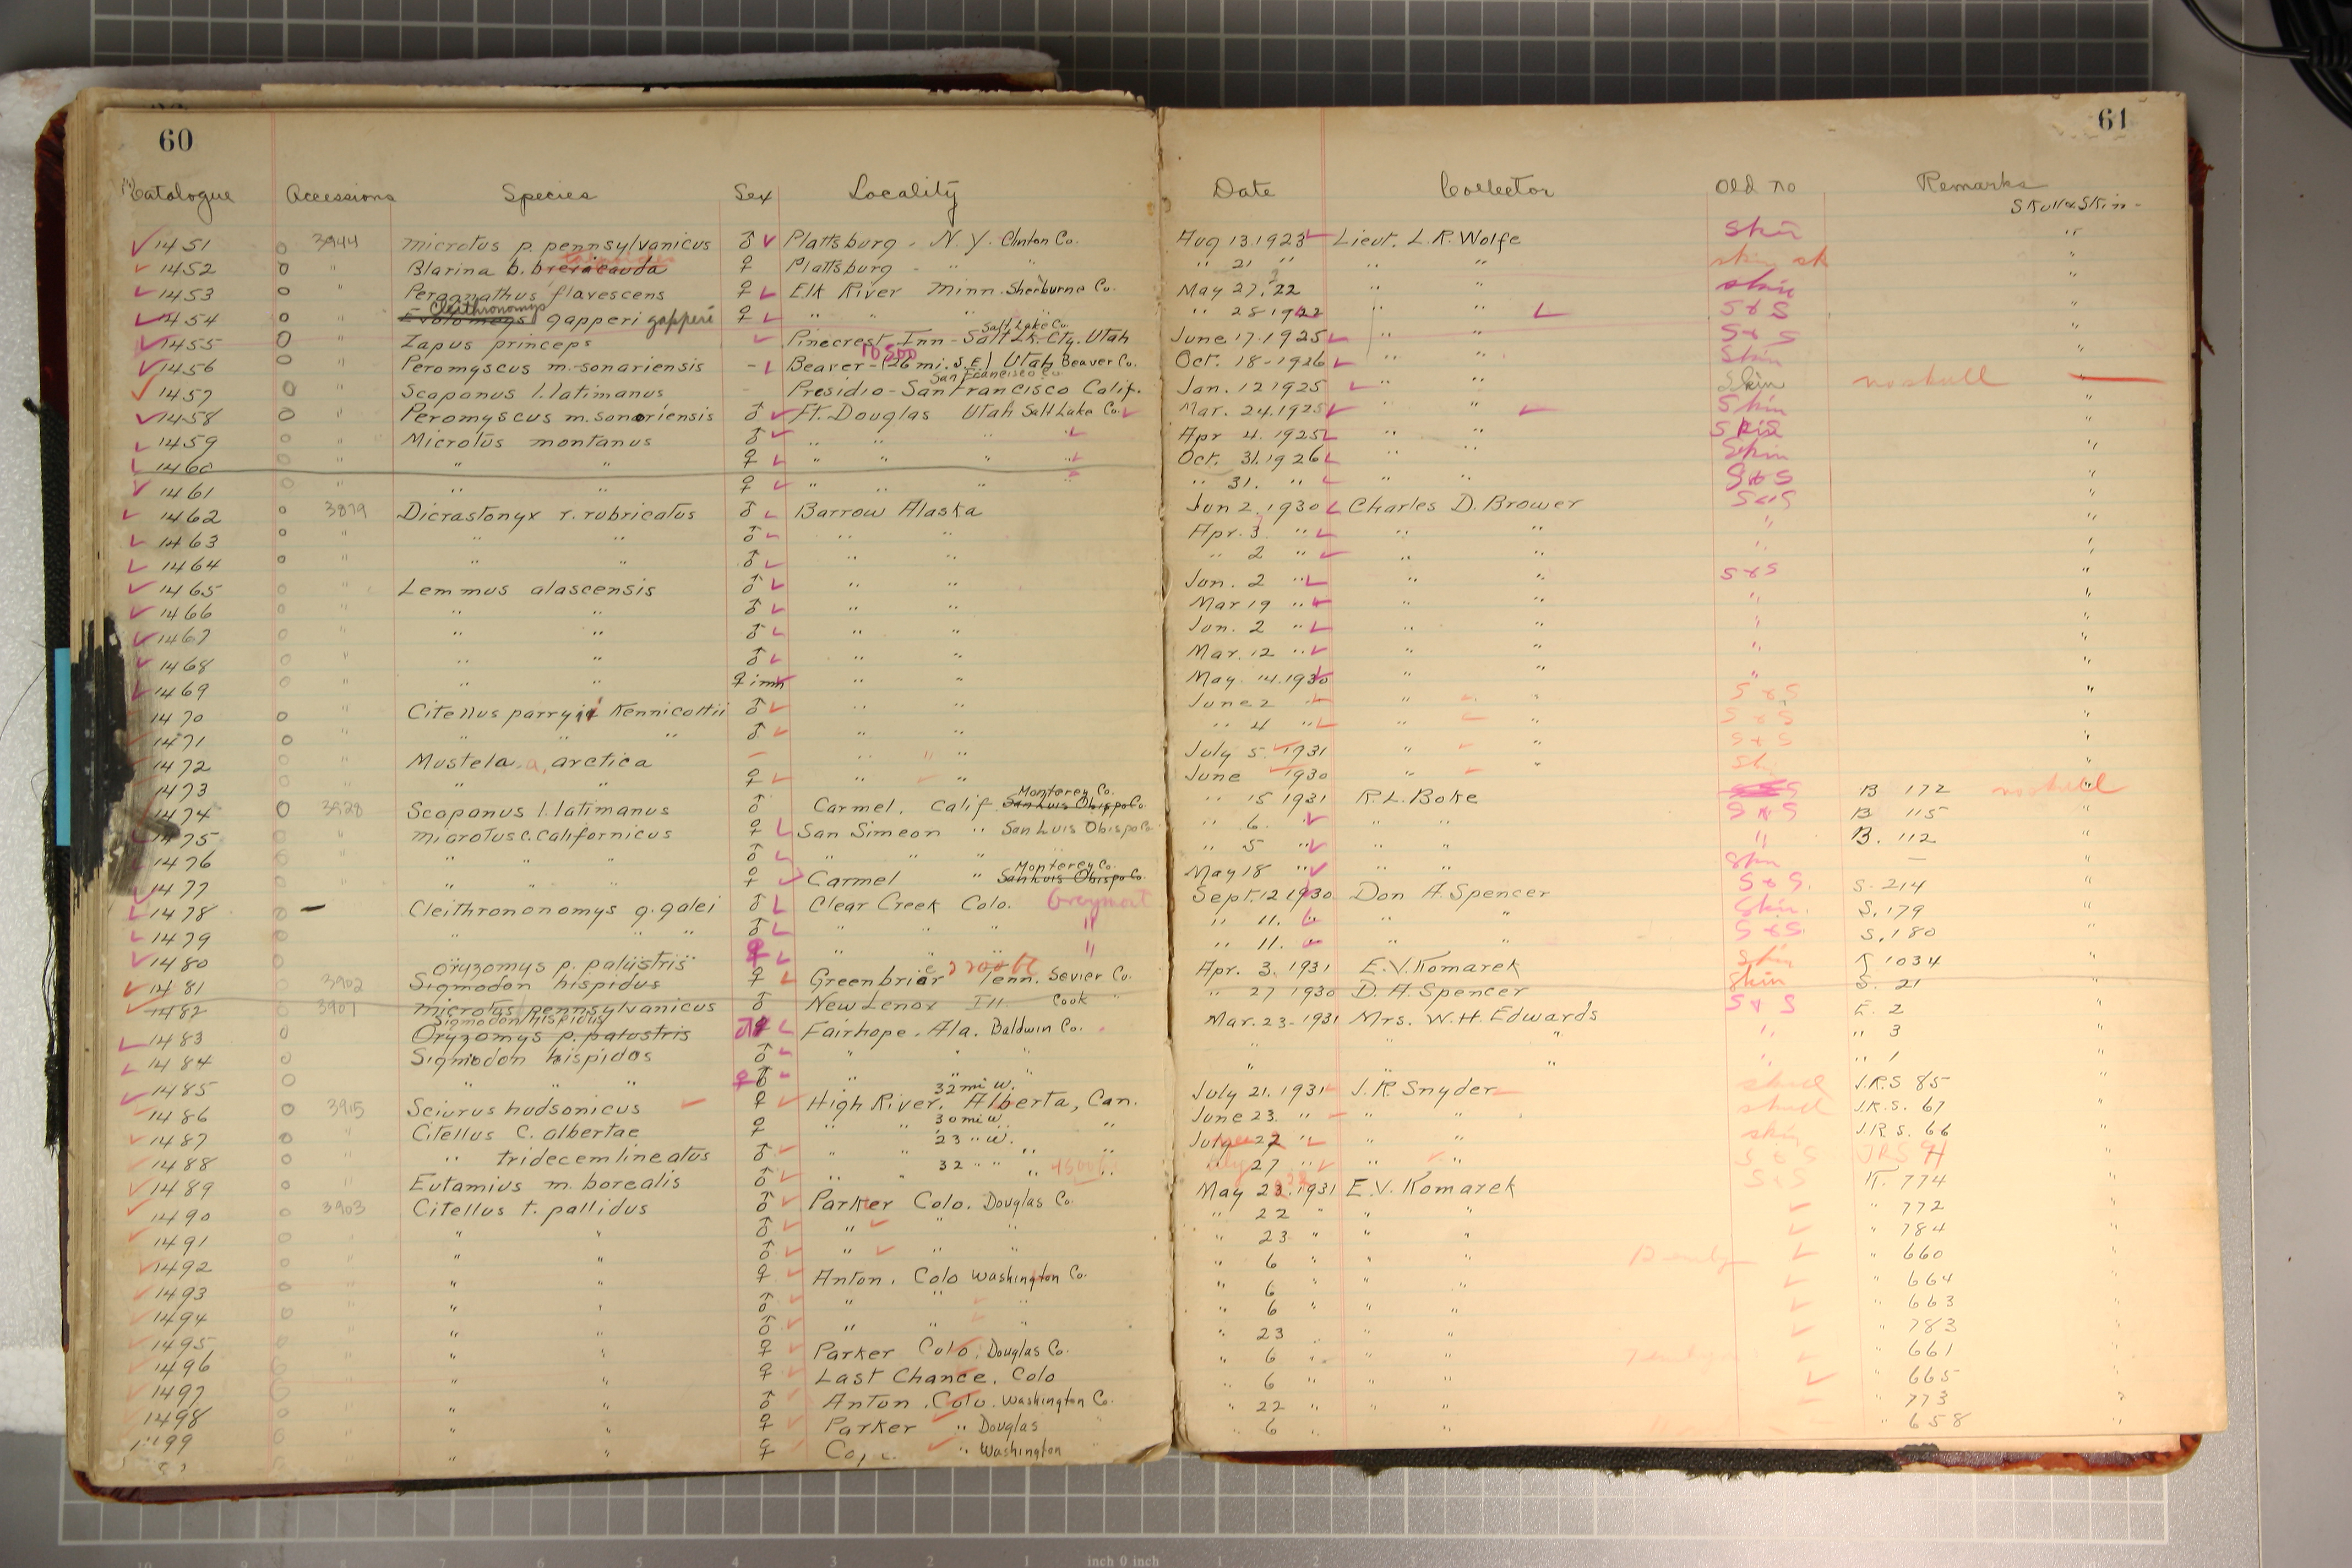 60
61
Catalogue Accessions Species Sex Locality Date Collector Old no Remarks
Skull & Skin -
1451 3944 microtus p. pennsylvanicus ♂ Plattsburg - N.Y. Clinton Co. Aug 13.1923 Lieut. L.R. Wolfe Skin "
1452 " Blarina b. brevicauda ♀ Plattsburg - " " " 21 " " " skin sk "
1453 " Perognathus flavescens ♀ Elk River Minn. Sherburne Co. May 27, '22 " " skin "
Cleithronomys
1454 " Evotomys gapperi gapperi ♀ " " " " 28 1922 " " S & S "
Salt Lake Co.
1455 " Zapus princeps Pinecrest Inn - Salt Lk. Cty. Utah June 17-1925 " " S & S "
10500
1456 " Peromyscus m. sonoriensis - Beaver - (26 mi. S.E.) Utah Beaver Co. Oct. 18-1926 " " Skin "
San Francisco Co
1457 " Scapanus l. latimanus Presidio - San Francisco Calif. Jan. 12 1925 " " Skin no skull
1458 " Peromyscus m. sonoriensis ♂ Ft. Douglas Utah Salt Lake Co. Mar. 24.1925 " " Skin "
1459 " Microtus montanus ♂ " " " Apr 4. 1925 " " Skin "
1460 " " " ♀ " " " Oct. 31.1926 " " Skin "
1461 " " " ♀ " " " " 31. " " " S & S "
1462 3879 Dicrastonyx r. rubricatus ♂ Barrow Alaska Jun 2.1930 Charles D. Brower S & S "
1463 " " " ♂ " " Apr. 3 " " " " "
1464 " " " ♂ " " " 2 " " " " "
1465 " Lemmus alascensis ♂ " " Jun. 2 " " " S & S "
1466 " " " ♂ " " Mar 19 " " " " "
1467 " " " ♂ " " Jun. 2 " " " " "
1468 " " " ♂ " " Mar. 12 " " " " "
1469 " " " ♀ imm " " May 14.1930 " " " "
1470 " Citellus parryii Kennicottii ♂ " " June 2 " " S & S "
1471 " " " " ♂ " " " 4 " " " S & S "
1472 " Mustela a. arctica - " " July 5. 1931 " " S & S "
1473 " " " ♀ " " June 1930 " " Sk "
Monterey Co.
1474 3928 Scapanus l. latimanus ♂ Carmel. Calif. San Luis Obispo Co. " 15 1931 R.L. Boke B 172 no skull
1475 " microtus c. californicus ♀ San Simeon " San Luis Obispo Co. " 6. " " " S & S B 115 "
1476 " " " " ♂ " " " " 5 " " " " B. 112 "
Monterey Co.
1477 " " " " ♀ Carmel " San Luis Obispo Co. May 18 " " " Skin — "
1478 - Cleithrononomys g. galei ♂ Clear Creek Colo. Graymont Sept. 12 1930 Don A. Spencer S & S. S. 214 "
1479 " " " ♂ " " " " " 11. " " Skin. S. 179 "
1480 ♀ " " " " " 11. " " S & S. S. 180 "
oryzomys p. palustris
1481 3902 Sigmodon hispidus ♀ Greenbrier Tenn. Sevier Co. Apr. 3. 1931 E.V. Komarek Skin K 1034 "
1482 3901 microtus pennsylvanicus ♂ New Lenox Ill. Cook " " 27 1930 D. A. Spencer Skin S. 21 "
Sigmodon hispidus
1483 Oryzomys p. palustris Fairhope. Ala. Baldwin Co. Mar. 23-1931 Mrs. W.H. Edwards S & S E. 2 "
1484 Sigmodon hispidus ♂ " " " " " " " " 3 "
1485 " " " ♀ " " " " " " " 1 "
32 mi w.
1486 3915 Sciurus hudsonicus ♀ High River, Alberta, Can. July 21. 1931 J.R. Snyder skull J.R.S 85 "
30 mi w.
1487 " Citellus C. albertae ♀ " " " June 23. " " " skull J.R.S. 67
23 " w.
1488 " " tridecemlineatus ♂ " " " July 27 " " " skin J.R.S. 66
32 " " 4500 f.
1489 " Eutamius m. borealis ♂ " " " July 27 " " " S & S JRS 94
1490 3903 Citellus t. pallidus ♂ Parker Colo. Douglas Co. May 23.1931 E.V. Komarek S & S K. 774 "
1491 " " " ♂ " " " " 22 " " " " 772 "
1492 " " " ♂ " " " " 23 " " " " 784 "
1493 " " " ♀ Anton. Colo Washington Co. " 6 " " " " 660 "
1494 " " " ♂ " " " " 6 " " " " 664 "
1495 " " " ♂ " " " " 6 " " " " 663 "
1496 " " " ♀ Parker Colo. Douglas Co. " 23 " " " " 783 "
1497 " " " ♀ Last Chance. Colo " 6 " " " " 661 "
1498 " " " ♂ Anton. Colo. Washington Co. " 6 " " " " 665 "
99 " " " ♀ Parker " Douglas " " 22 " " " " 773 "
" " ♀ " Washington " " 6 " " " 658 "